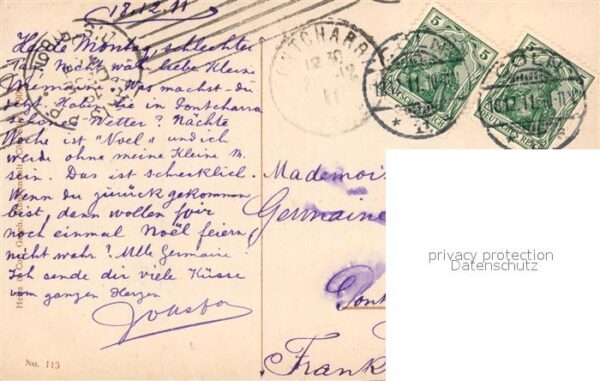 18.12.11
Heute Montag schlechter
Tag. Nicht wahr liebe Kleine
Germaine? Was machst du
jetzt. Haben Sie in Pontcharra
schön Wetter? Nächte
Woche ist "Noël" und ich
werde ohne meine Kleine M.
sein. Das ist schrecklich.
Wenn du zurückgekommen
bist, dann wollen wir
noch einmal Noël feiern
nicht wahr? Mlle Germaine
Ich sende dir viele Küsse
vom ganzen Herzen
No. 113
PONTCHARRA
5
CÖLN
DEUTSCHES REICH
Mademois
Germaine
Pont
Frank
privacy protection
Datenschutz